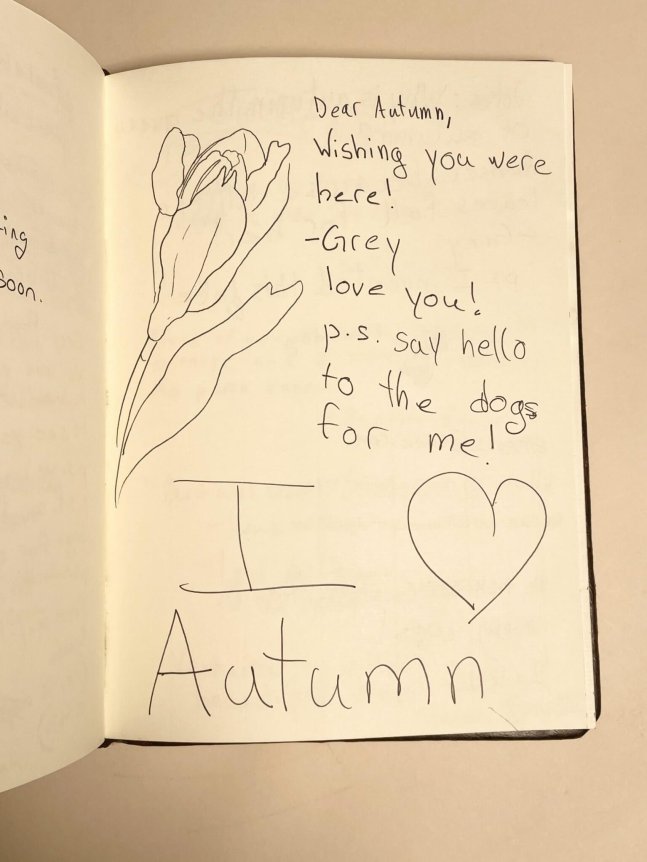 ing
soon.
Dear Autumn,
Wishing you were
here!
-Grey
love you!
p.s. say hello
to the dogs
for me!
I
Autumn